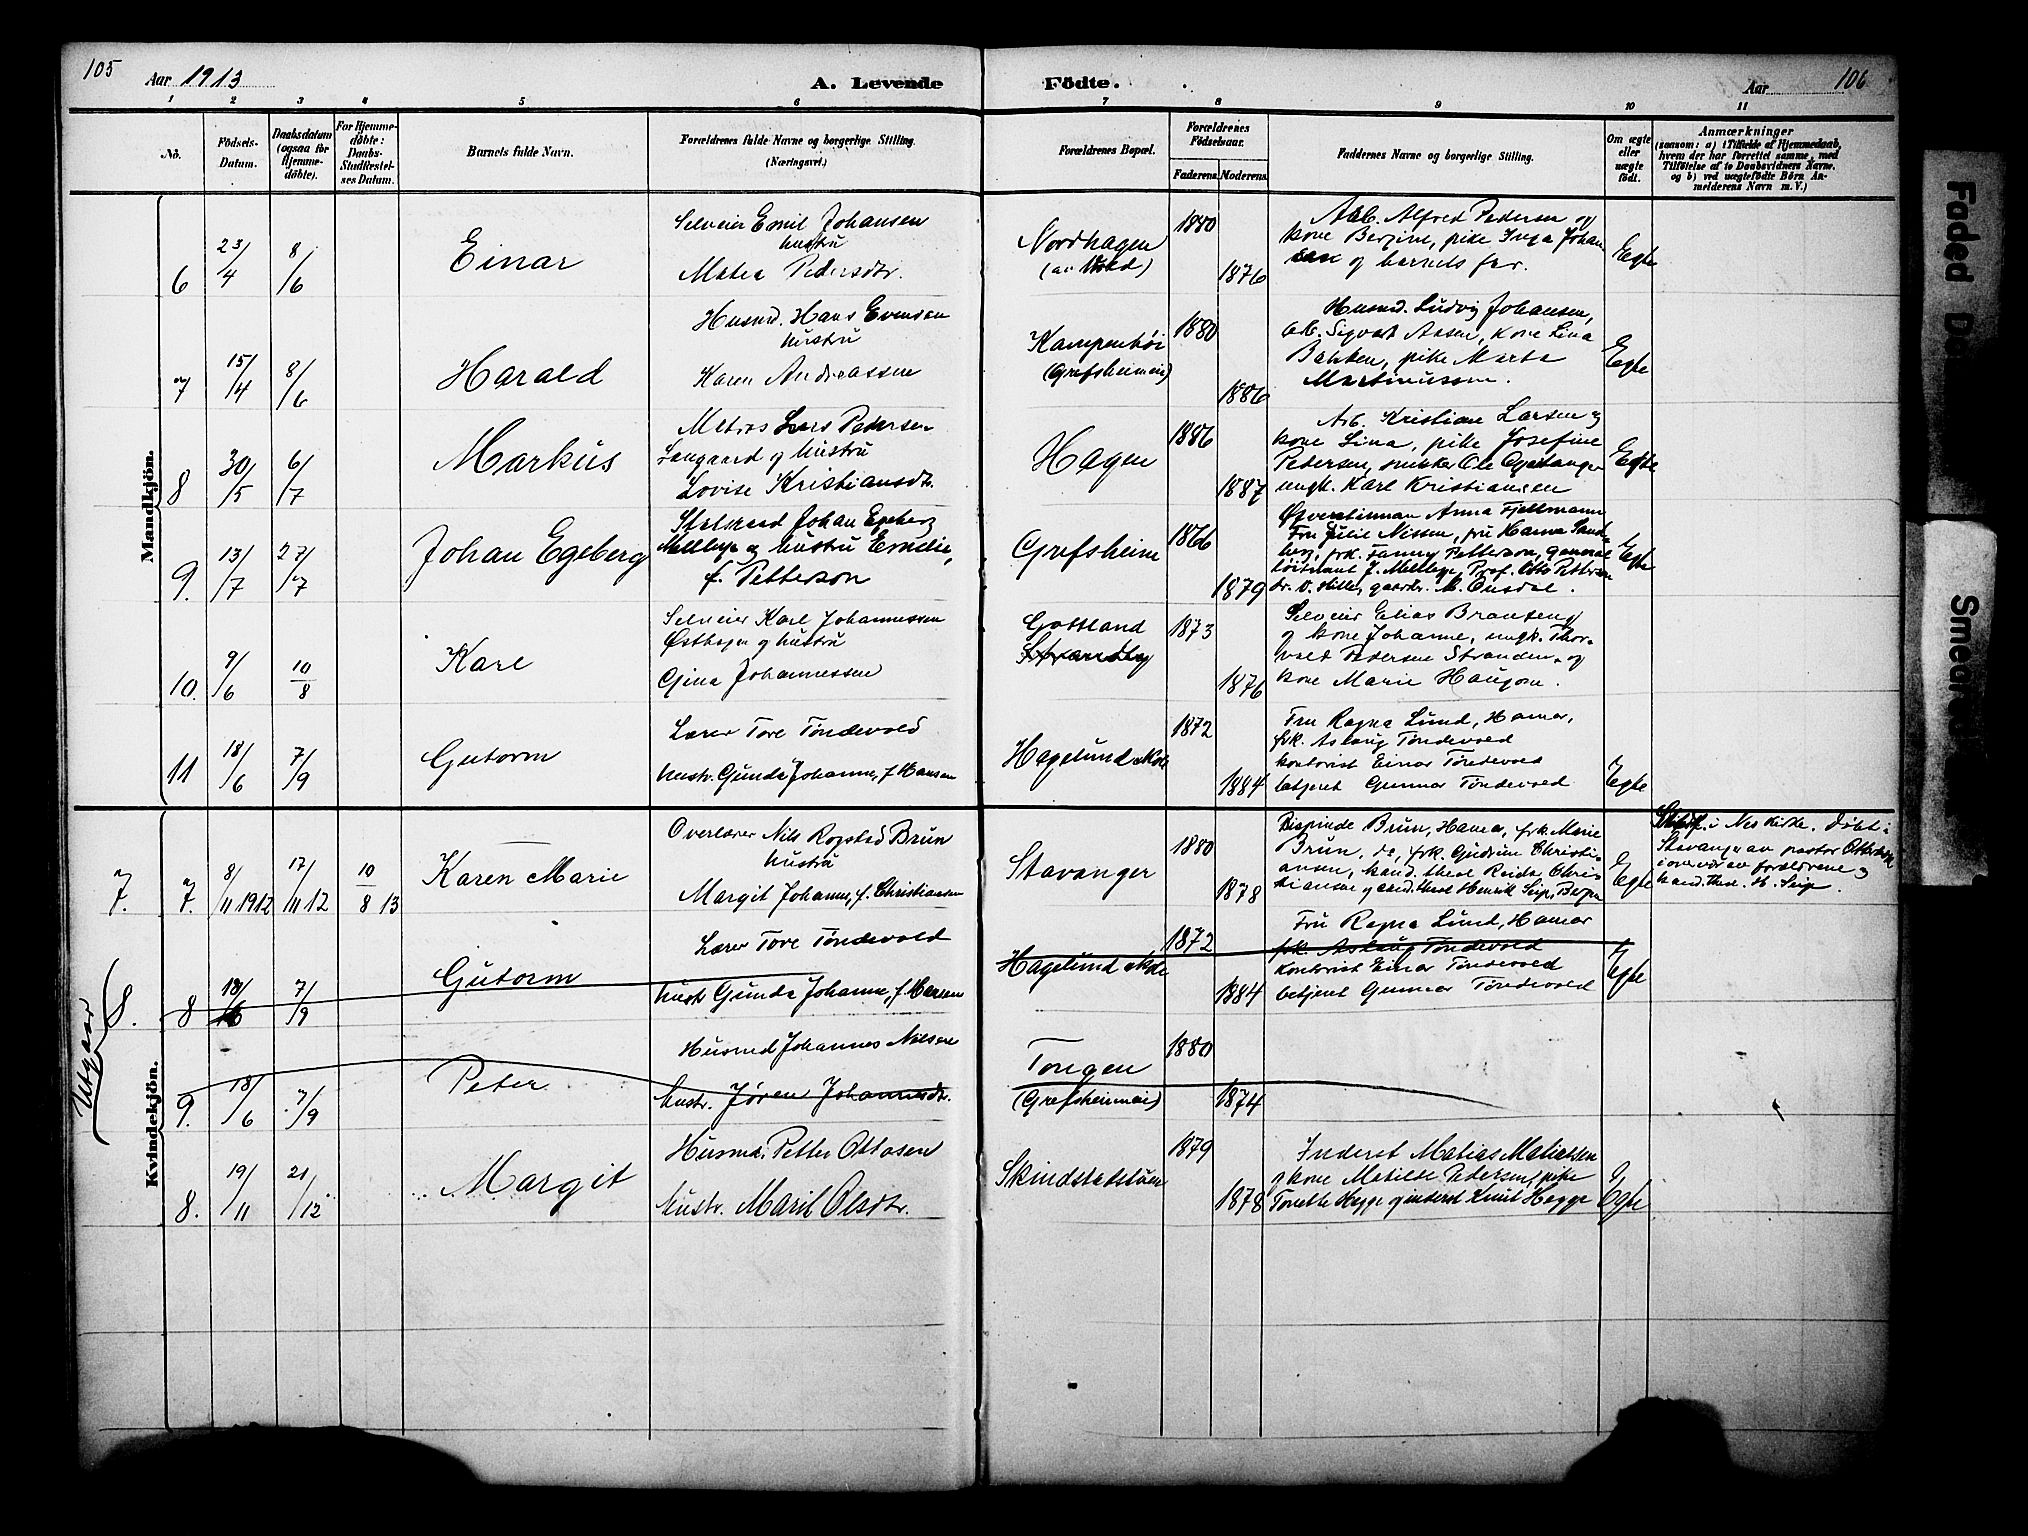 105
Aar 1913
A. Levende
Födte.
Aar
106
1 2 3 4 5 6 7 8 9 10 11
No.
Födsels-
Datum.
Daabsdatum
(ogsaa for
Hjemme-
döbte).
For Hjemme-
döbte:
Daabs-
Stadfæstel-
ses Datum.
Barnets fulde Navn.
Forældrenes fulde Navne og borgerlige Stilling.
(Næringsvei.)
Forældrenes Bopæl.
Forældrenes
Födselsaar.
Faderens.
Moderens.
Faddernes Navne og borgerlige Stilling.
Om ægte
eller
uægte
födt.
Anmærkninger
(saasom: a) i Tilfælde af Hjemmedaab,
hvem der har forrettet samme, med
Tilföielse af to Daabsvidners Navne.
og b) ved uægtefödte Börn An-
melderens Navn m. V.)
Mandkjön.
6
23/4
8/6
Einar
Selveier Emil Johansen
hustru
Matea Pedersdtr.
Nordhagen
1880
1876
Arb. Alfred Pedersen og
kone Bergine, pike Inga Johan
sen og barnets far.
Egte
7
15/4
8/6
Harald
Husmd. Hans Evensen
hustru
Karen Andreassen
Kampenhöi
(Grefsheimei)
1880
1886
Husmd. Ludvig Johansen,
arb. Sigvart Aasen, kone Lina
Bakken, pike Marta
Martinussen.
Egte
8
30/5
6/7
Markus
Matros Lars Pedersen
Langaard og hustru
Lovise Kristiansdtr.
Hagen
1886
1887
Arb. Kristian Larsen og
kone Lina, pike Josefine
Pedersen, snikker Ole
ungk. Karl Kristiansen
Egte
9.
13/7
27/7
Johan Egeberg
Johan Egeberg
Mellbye og hustru Emilie,
f. Petterson
Grefsheim
1866
1879
Anna Fjellmann
Fru Julie Nissen, fru Hanna Sand-
berg, frk. Fanny Petterson, general
löitnant J. Mellbye, Prof. Otto Petterson
dr. O. Hille, gaardbr. M. Onsdal.
Egte
10.
9/6
10/8
Kare
Selveier Karl Johannessen
Østhagen og hustru
Gina Johannessen
Gottland
Strandby
1873
1876
Selveier Elias Brandseng
og kone Johanne, ungk. Thor-
vald Pedersen Stranden og
kone Marie Haugom.
11
18/6
7/9
Gutorm
Lærer Tore Töndevold
hustr. Gunda Johanne, f. Hansen
Hagelund skole
1872
1884
Fru Ragna Lund, Hamar,
frk. Aslaug Töndevold
kontorist Einar Töndevold
betjent Gunnar Töndevold
Egte
Kvindekjön.
7.
7.
8/11 1912
17/11 12
10/8 13
Karen Marie
Overlærer Nils Rogstad Brun
hustru
Margit Johanne, f. Christiansen
Stavanger
1880
1878
Bispinde Brun, Hamar, frk. Marie
Brun, do, frk. Gudrun Christi-
ansen, kand. theol Reidar Chris-
tiansen og cand. theol Henrik Seip, Bergen
Egte
i Nes kirke. Döbt i
Stavanger av pastor
i overvær av forældrene og
kand. theol. H. Seip.
Utgaar
8.
8
18/6
7/9
Gutorm
Lærer Tore Töndevold
hustr Gunda Johanne, f. Hansen
Hagelund skole
1872
1884
Fru Ragna Lund, Hamar
frk. Aslaug Töndevold
kontorist Einar Töndevold
betjent Gunnar Töndevold
Egte
9.
18/6
7/9
Peter
Husmd Johannes Nilsen
hustr. Jören Johannesdtr.
Tongen
(Grefsheimei)
1880
1874
8.
19/11
21/12
Margit
Husmd. Petter Ottosen
hustr. Maril Olsdtr.
Skindstadstuen
1879
1878
Inderst Matias Matiassen
og kone Matilde Pedersen, pike
Tonette Hegge og inderst Knut Hegge
Egte
Faded D
Smear